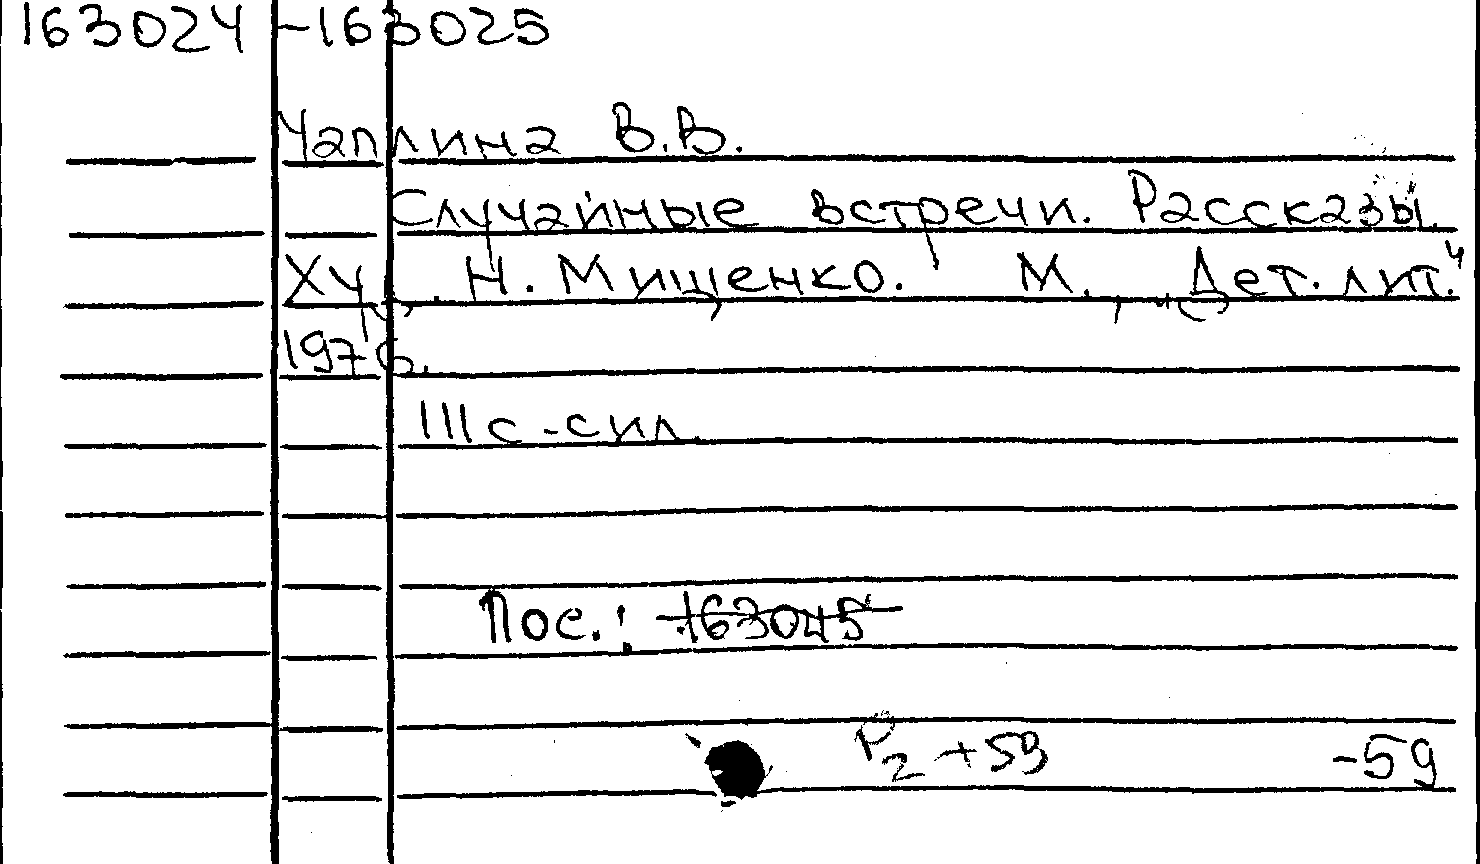 163024-163025
Чаплина В.В.
Случайные встречи. Рассказы.
Худ. Н. Мищенко. М., "Дет. лит."
1976.
111с-сил.
Пос.: 163045
Р2+59 -59